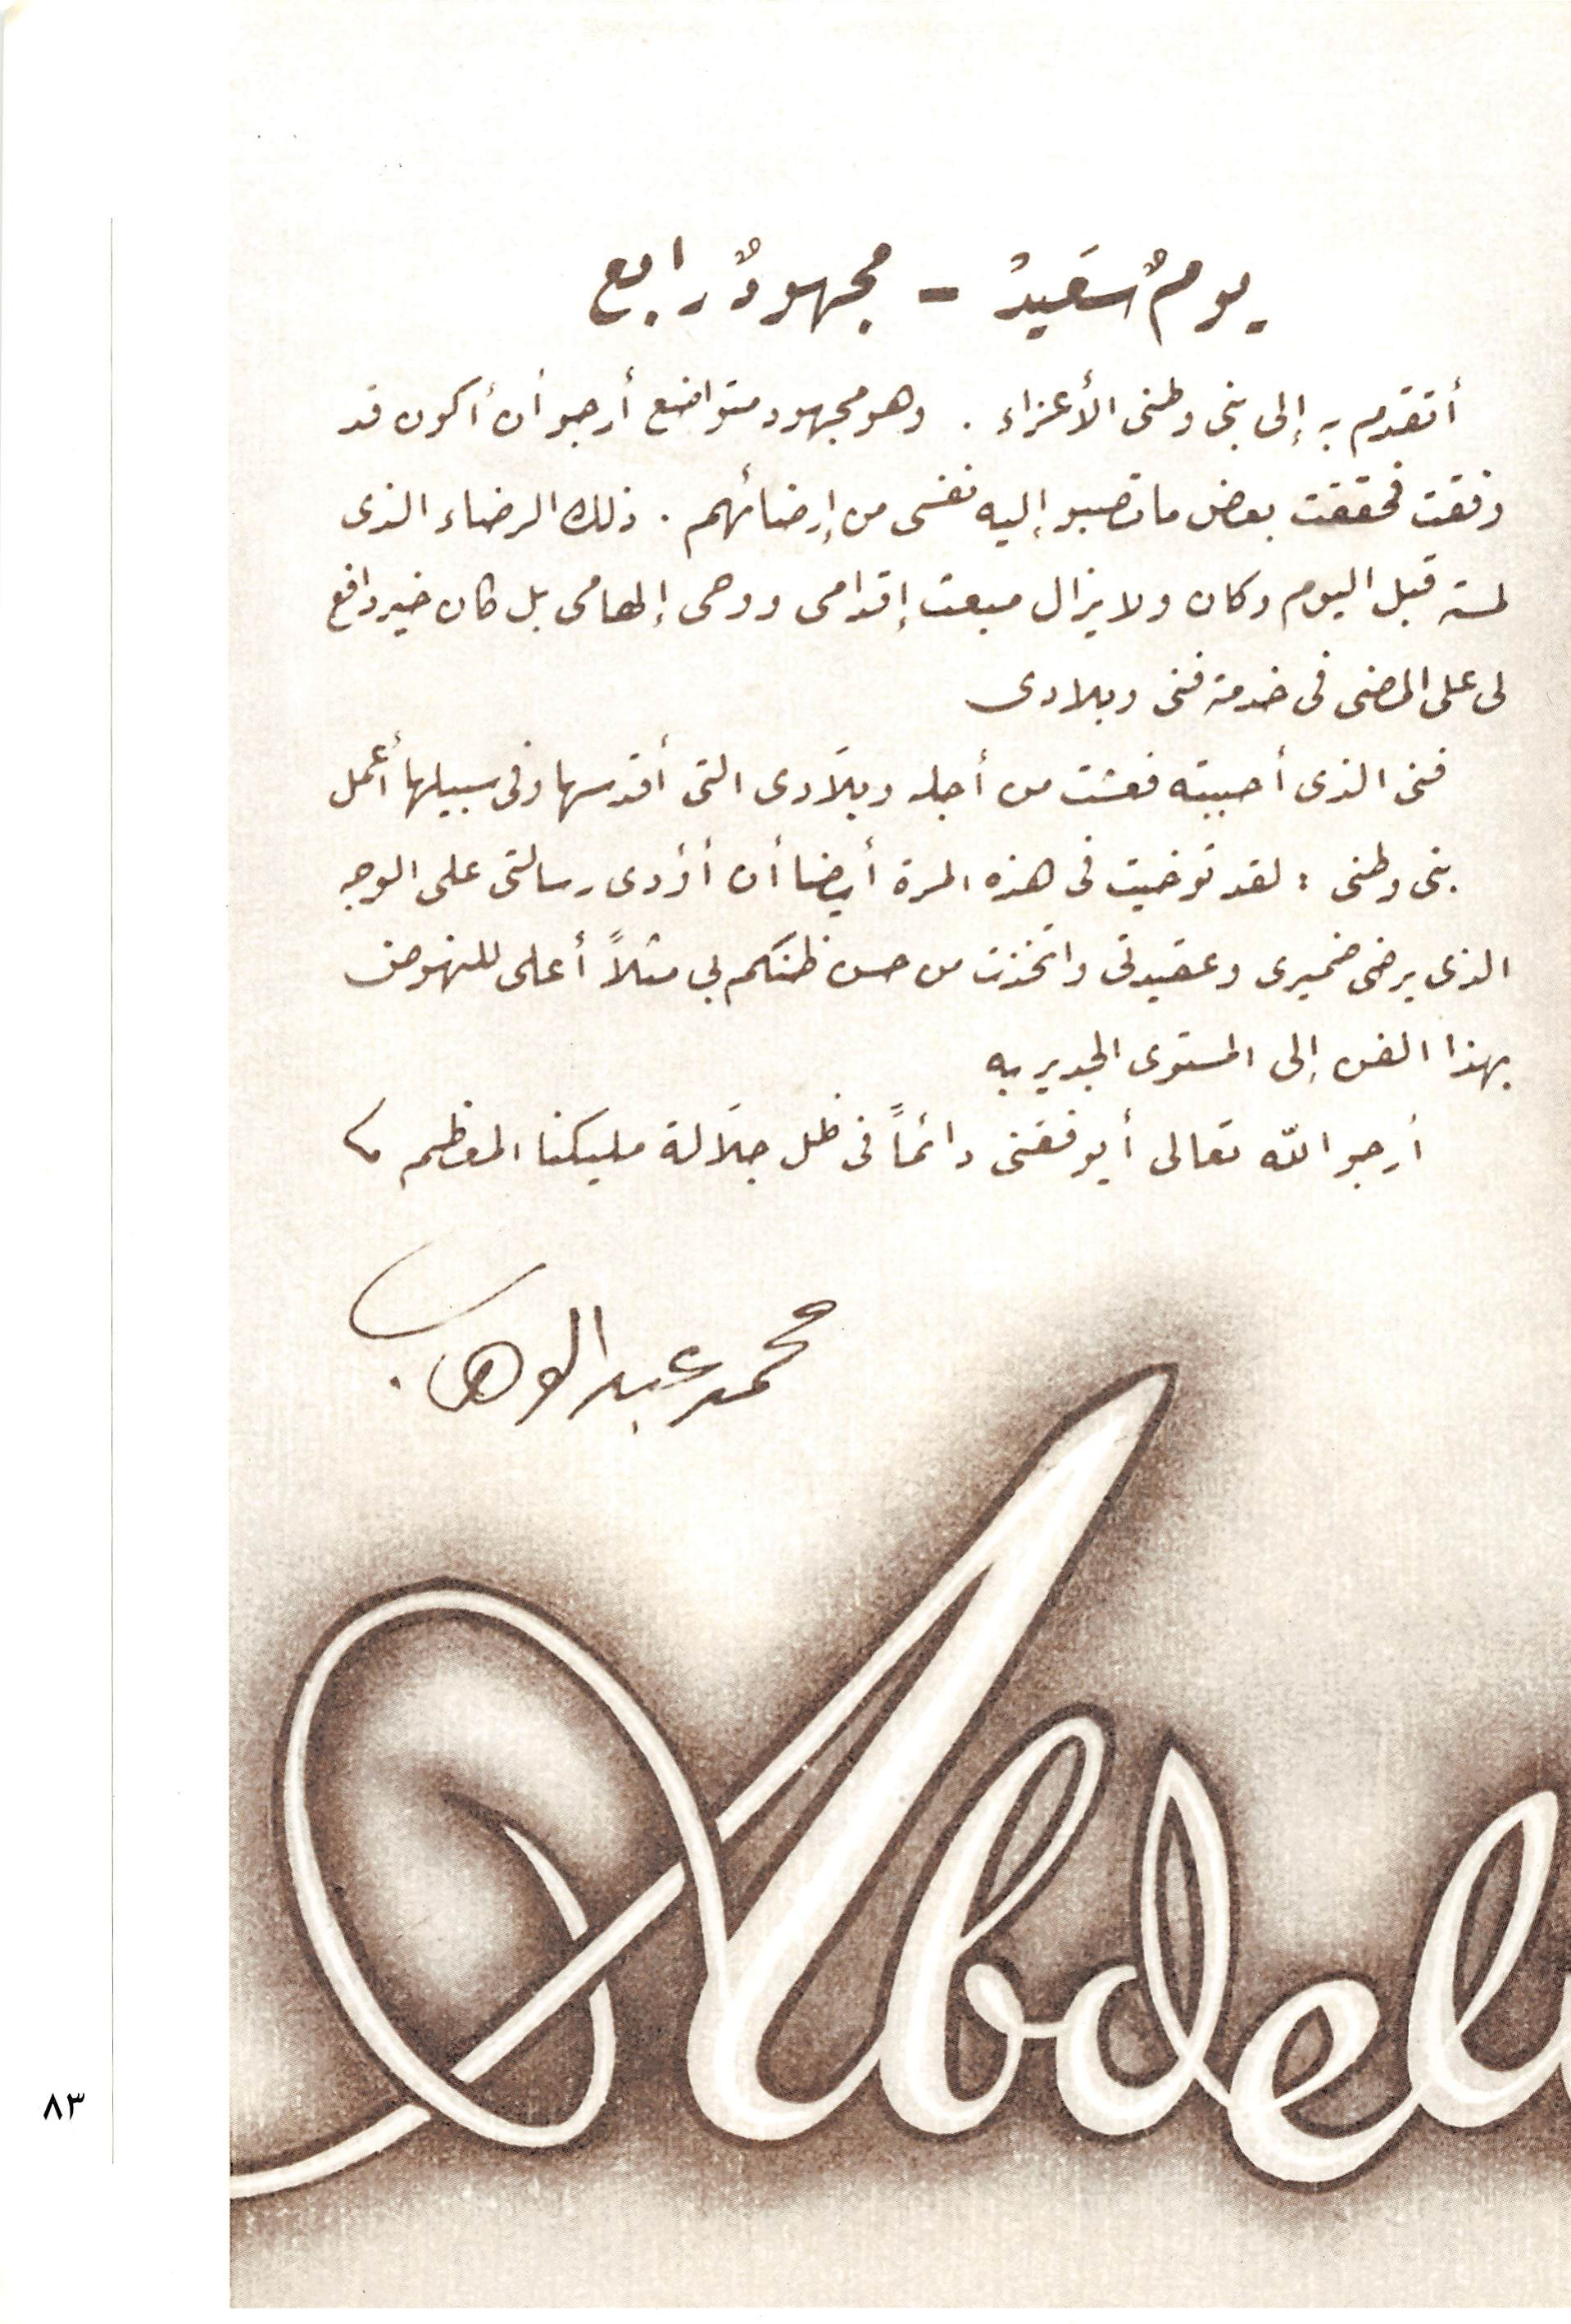 يومٌ سَعيدٌ - مجهودٌ رابع
أتقدم به إلى بنى وطنى الأعزاء . وهو مجهود متواضع أرجو أن أكون قد
وفقت فحققت بعض ما تصبو إليه نفسى من إرضائهم . ذلك الرضاء الذى
لمسته قبل اليوم وكان ولا يزال مبعث إقدامى ووحى إلهامى بل كان خير دافع
لى على المضى فى خدمة فنى وبلادى
فنى الذى أحببته فعشت من أجله وبلَادى التى أقدسها وفى سبيلها أعمل
بنى وطنى : لقد توخيت فى هذه المرة أيضا أن أؤدى رسالتى على الوجه
الذى يرضى ضميرى وعقيدتى واتخذت من حسن ظنكم بى مثلاً أعلى للنهوض
بهذا الفن إلى المستوى الجدير به
أرجو اللّه تعالى أيوفقنى دائماً فى ظل جلَالة مليكنا المعظم
محمد عبد الوهاب
Abdel
٨٣